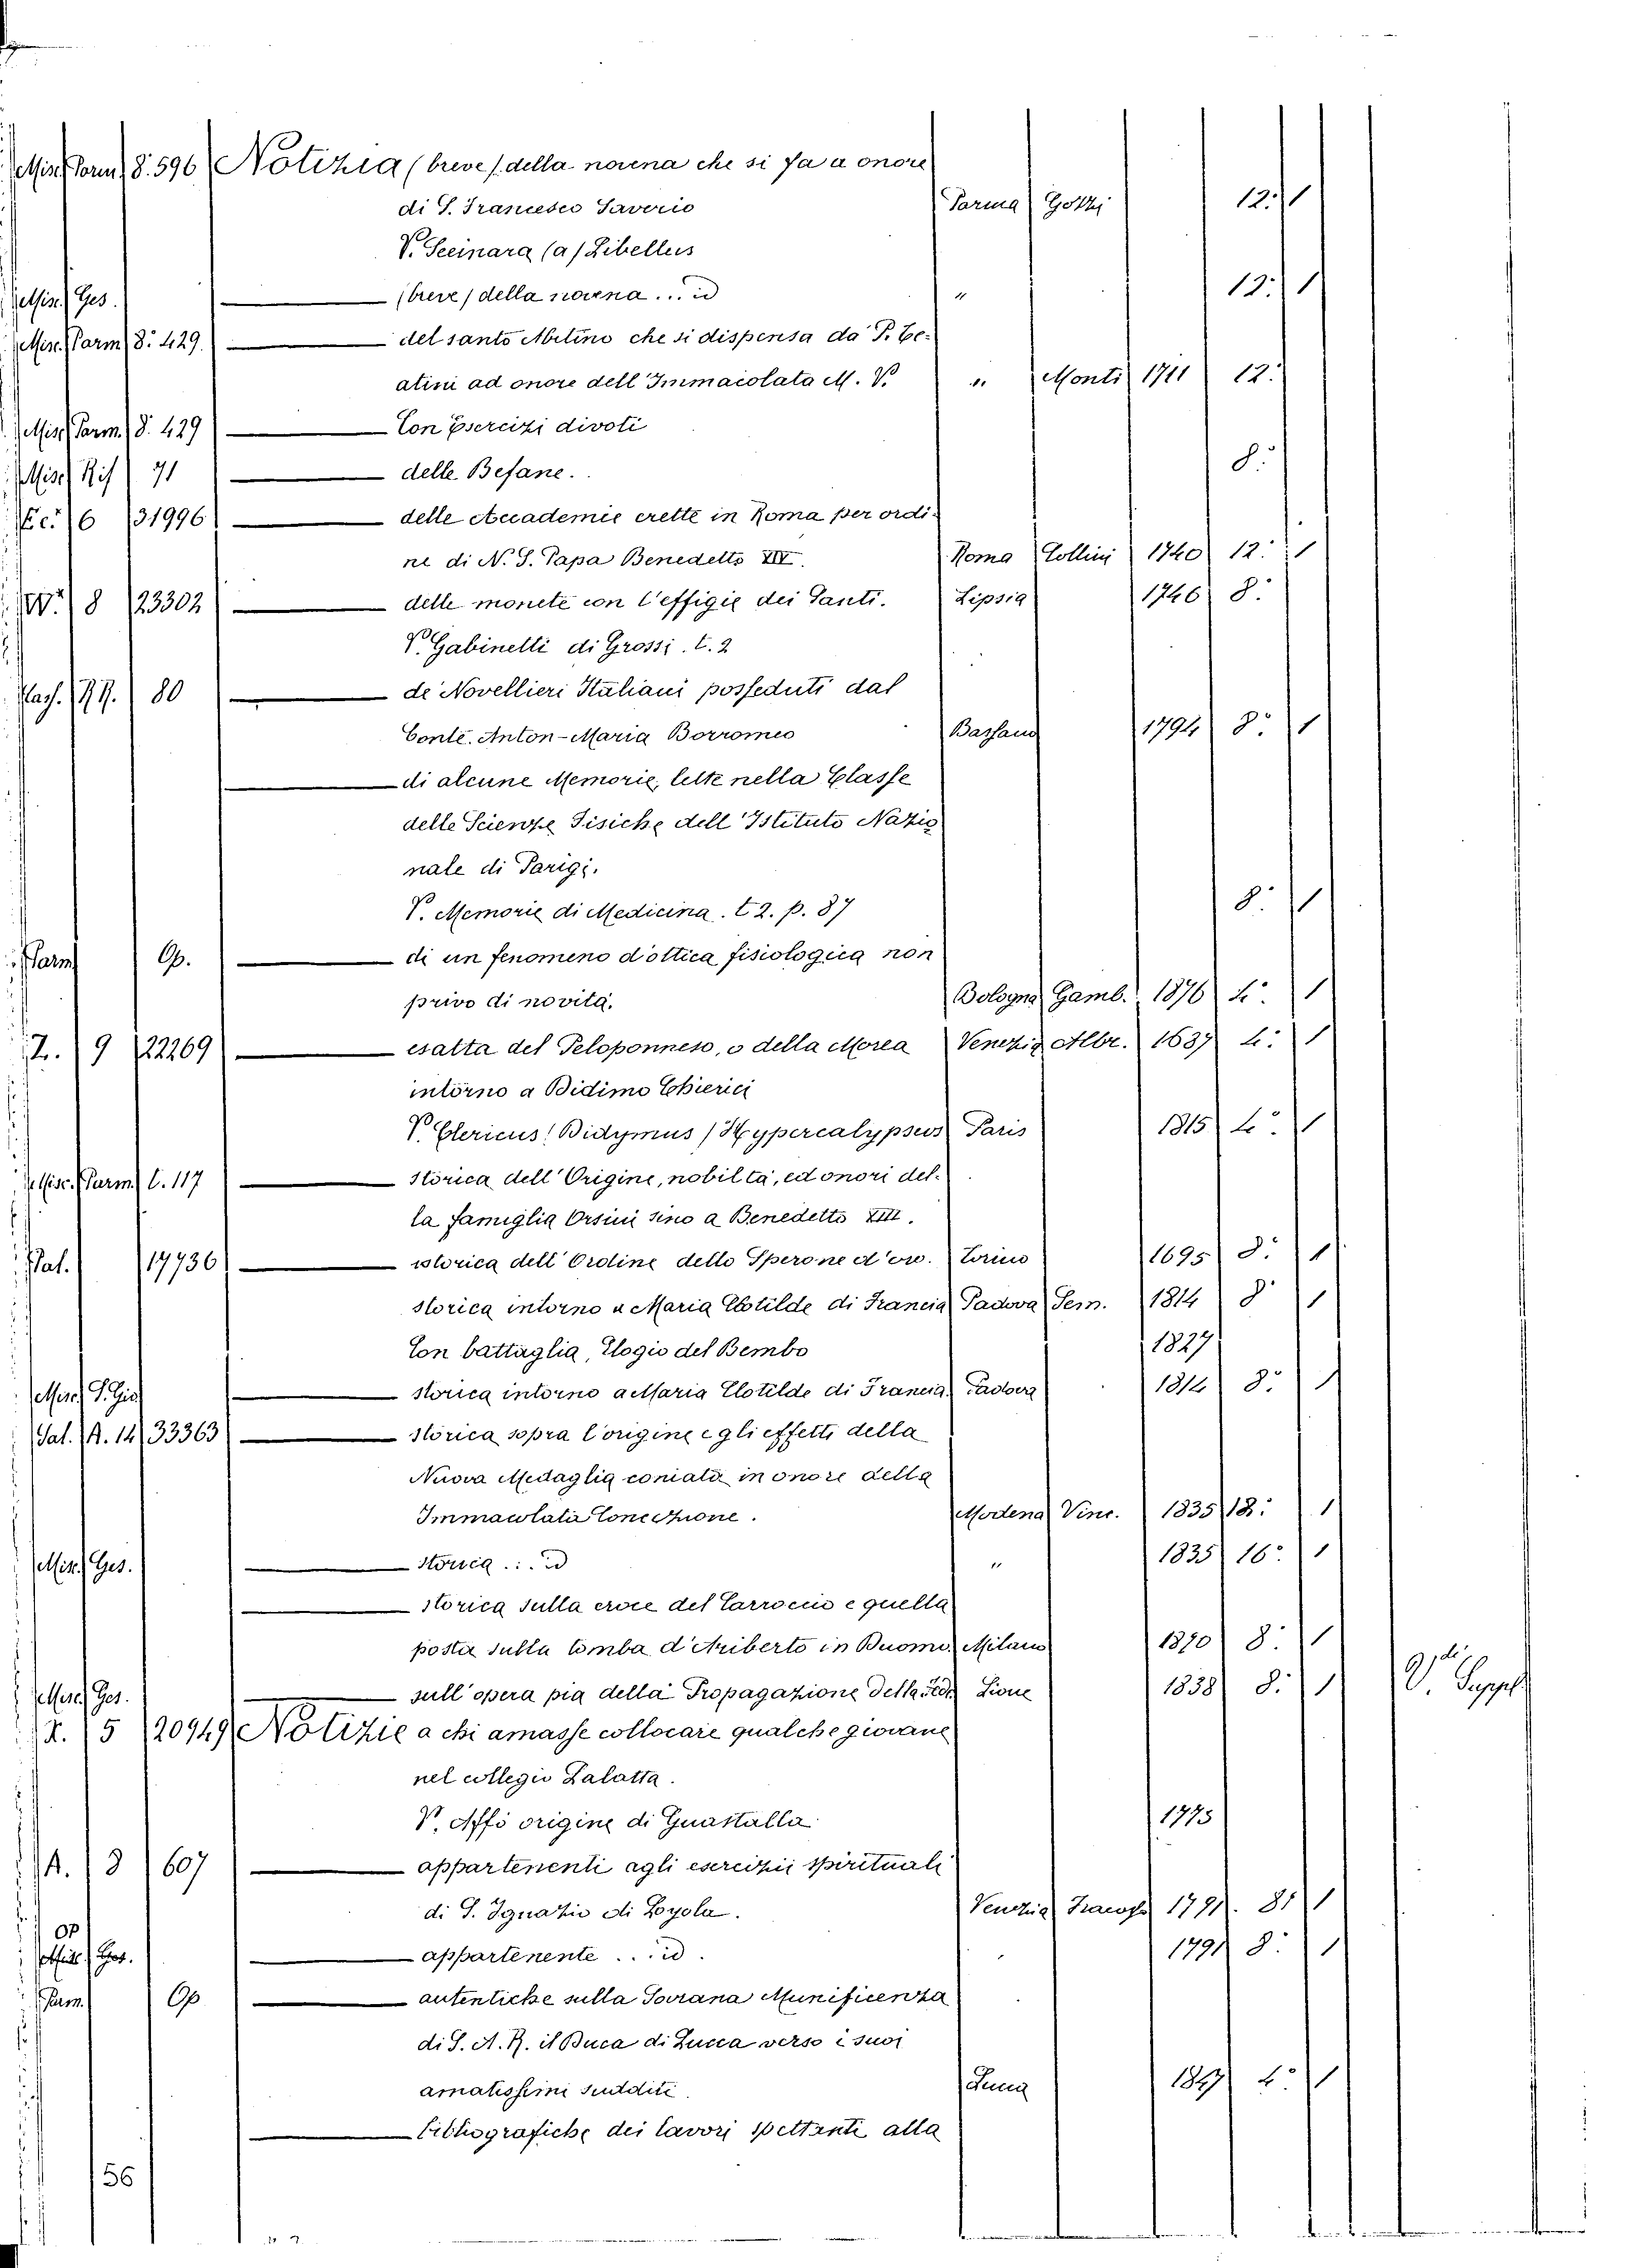 Misc. Parm. 8.° 596 Notizia (breve) della novena che si fa a onore
di S. Francesco Saverio Parma Gozzi 12.° 1
V. Scinara (a) Libellus
Misc. Ges. — (breve) della novena... id " 12.° 1
Misc. Parm. 8.° 429. — del santo Abitino che si dispensa da P. Te-
atini ad onore dell'Immacolata M. V. " Monti 1711 12.°
Misc. Parm. 8.° 429 — Con Esercizi divoti
Misc. Rif. 71 — delle Befane. 8.°
6 31996 — delle Accademie erette in Roma per ordi-
ne di N. S. Papa Benedetto XIV. Roma Collini 1740 12.° 1
W.° 8 23302 — delle monete con l'effigie dei Santi. Lipsia 1746 8.°
V. Gabinetti di Grossi. t. 2
80 — de' Novellieri Italiani posseduti dal
Conte. Anton-Maria Borromeo Bassano 1794 8.° 1
— di alcune Memorie, lette nella Classe
delle Scienze Fisiche dell'Istituto Nazio
nale di Parigi.
V. Memorie di Medicina. t 2. p. 87 8.° 1
Parm Op. — di un fenomeno d'ottica fisiologica non
privo di novità. Bologna Gamb. 1876 4.° 1
Z. 9 22269 — esatta del Peloponneso, o della Morea Venezia Albr. 1687 4.° 1
intorno a Didimo Chierici
V. Clericus! Didymus / Hypercalypseos Paris 1815 4.° 1
Misc. Parm. t. 117 — storica dell'Origine, nobiltà, ed onori del-
la famiglia Orsini sino a Benedetto XIII.
Pal. 17736 — istorica dell'Ordine dello Sperone d'oro. Torino 1695 8.° 1
storica intorno a Maria Clotilde di Francia Padova Sem. 1814 8.° 1
Con battaglia, Elogio del Bembo 1827
Misc. S. Gio — storica intorno a Maria Clotilde di Francia. Padova 1814 8.° 1
Sal. A. 14 33363 — storica sopra l'origine e gli effetti della
Nuova Medaglia coniata in onore della
Immacolata Concezione. Modena Vinc. 1835 18.° 1
Misc. Ges. — storica... id " 1835 16.° 1
— storica sulla croce del Carroccio e quella
posta sulla tomba d'Ariberto in Duomo. Milano 1870 8.° 1
Misc. Ges. — sull'opera pia della Propagazione della Fede Lione 1838 8.° 1 V. Suppl.
5 20949 Notizie a chi amasse collocare qualche giovane
nel collegio Lalatta.
V. Affò origine di Guastalla 1775
A. 8 607 — appartenenti agli esercizii spirituali
di S. Ignazio di Loyola. Venezia 1791. 8.° 1
Op
Misc. Ges. — appartenente... id. 1791 8.° 1
Parm. Op — autentiche sulla Sovrana Munificenza
di S. A. R. il Duca di Lucca verso i suoi
amatissimi sudditi. Lucca 1847 4.° 1
— bibliografiche dei lavori spettanti alla
56